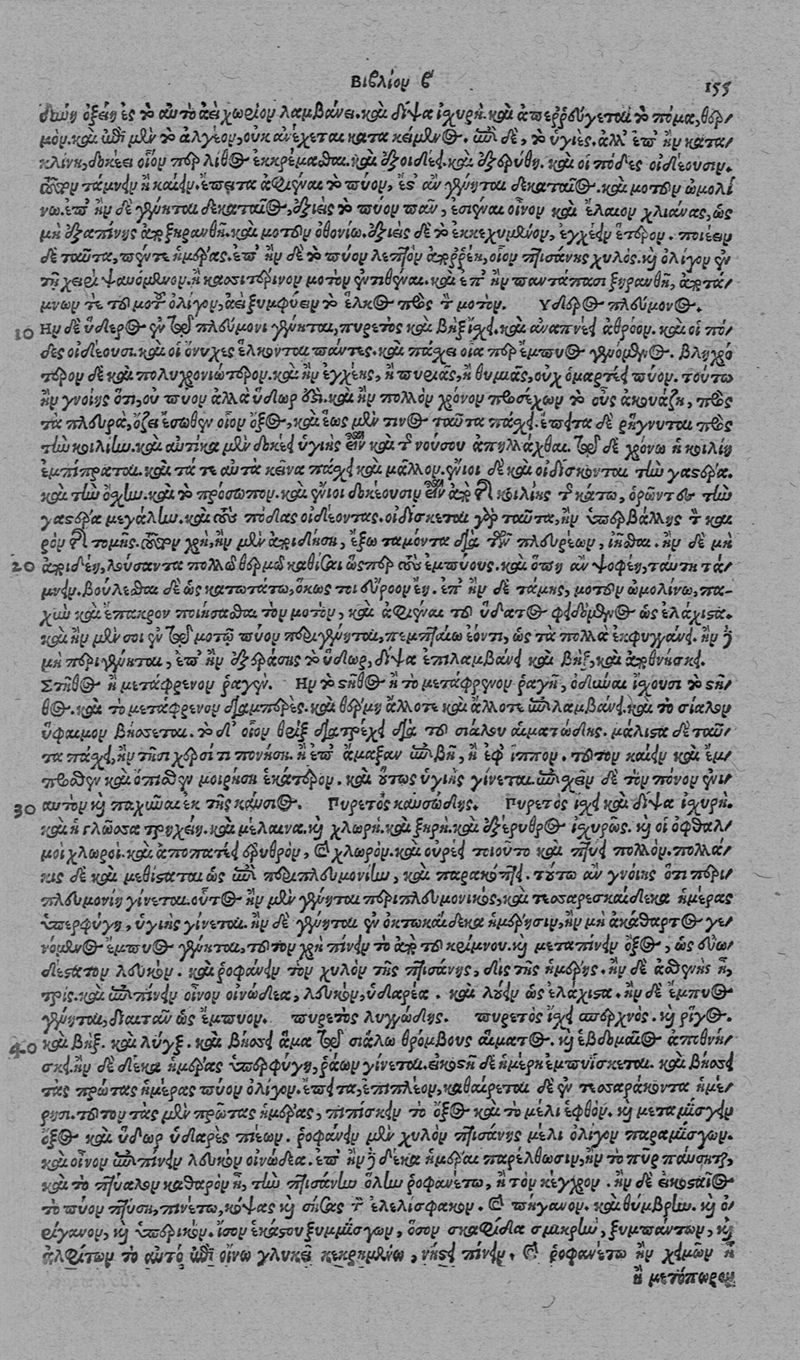 Βιβλίον β 155
δύνη ὀξείη ἐς τὸ αὐτὸ ἀεὶ χωρίον λαμβάνει. καὶ δίψα ἰσχυρή. καὶ ἀπερρεύγεται τὸ πόμα, θερ-
μόν. καὶ ἐπὶ μὲν τὸ ἀλγέον, οὐκ ἀνέχεται κατακείμενος. ἐπὶ δὲ, τὸ ὑγιές. ἀλλ' ἐπ' ἢν κατα-
κλίνῃ, δοκέει οἷον περ λίθος ἐκκρέμασθαι. καὶ ἐξοιδέει. καὶ ἐξερύθει. καὶ οἱ πόδες οἰδέουσιν.
τοῦτον τάμνειν ἢ καίειν. ἔπειτα ἀφιέναι τὸ πύον, ἔστ' ἂν γένηται δεκαταῖος. καὶ μοτοῦν ὠμολί-
νῳ. ἐπ' ἢν δὲ γένηται δεκαταῖος, ἐξιεὶς τὸ πύον πᾶν, ἐσιέναι οἶνον καὶ ἔλαιον χλιήνας, ὡς
μὴ ἐξαπίνης ἀποξηρανθῇ. καὶ μοτοῦν ὀθονίῳ. ἐξιεὶς δὲ τὸ ἐκκεχυμένον, ἐγχέειν ἕτερον. ποιέειν
δὲ ταῦτα, πέντε ἡμέρας. ἐπ' ἢν δὲ τὸ πύον λεπτὸν ἀπορρέῃ, οἷον πτισάνης χυλὸς. καὶ ὀλίγον ἐν
τῇ χειρὶ ψαυόμενον. ἢ κασσιτέρινον μοτὸν ἐντιθέναι. καὶ ἐπ' ἢν παντάπασι ξηρανθῇ, ἀποτά-
μνων τε τοῦ μοτοῦ ὀλίγον, ἀεὶ ξυμφύειν τὸ ἕλκος πρὸς τὸν μοτόν. Ὕδερος πλεύμονος.
10 Ἢν δὲ ὕδερος ἐν τῷ πλεύμονι γένηται, πυρετὸς καὶ βὴξ ἴσχει. καὶ ἀναπνέει ἀθρόον. καὶ οἱ πό-
δες οἰδέουσι. καὶ οἱ ὄνυχες ἕλκονται πάντες. καὶ πάσχει οἷα περ ἔμπυος γενόμενος. βληχρό-
τερον δὲ καὶ πολυχρονιώτερον. καὶ ἢν ἐγχέῃς, ἢ πυριᾷς, ἢ θυμιᾷς, οὐχ ὁμαρτέει πύον. τούτῳ
ἢν γνοίης ὅτι, οὐ πύον ἀλλὰ ὕδωρ ἔνι. καὶ ἢν πολλὸν χρόνον προσέχων τὸ οὖς ἀκουάζῃ, πρὸς
τὰ πλευρὰ, ὄζει ἔσωθεν οἷον ὄξος, καὶ ἕως μὲν τινος ταῦτα πάσχει. ἔπειτα δὲ ῥήγνυται πρὸς
τὴν κοιλίην. καὶ αὐτίκα μὲν δοκέει ὑγιὴς εἶναι καὶ τοῦ νούσου ἀπηλλάχθαι. τῷ δὲ χρόνῳ ἡ κοιλίη
ἐμπίπραται. καὶ τά τε αὐτὰ κεῖνα πάσχει καὶ μᾶλλον. ἔνιοι δὲ καὶ οἰδίσκονται τὴν γαστέρα.
καὶ τὴν ὄσχην. καὶ τὸ πρόσωπον. καὶ ἔνιοι δοκέουσιν εἶναι ἀπὸ τῆς κοιλίης τῆς κάτω, ὁρῶντες τὴν
γαστέρα μεγάλην. καὶ τοὺς πόδας οἰδέοντας. οἰδίσκεται γὰρ ταῦτα, ἢν ὑπερβάλλῃς τὸν και-
ρὸν τῆς τομῆς. τοῦτον χρὴ, ἢν μὲν ἀποιδήσῃ, ἔξω ταμόντα διὰ τῶν πλευρέων, ἰῆσθαι. ἢν δὲ μὴ
20 ἀποιδέῃ, λούσαντα πολλῷ θερμῷ καθίσαι ὥσπερ τοὺς ἐμπύους. καὶ ὅπη ἂν ψοφέῃ, ταύτῃ τά-
μνειν. βούλεσθαι δὲ ὡς κατωτάτω, ὅκως τοι εὔροον ἔῃ. ἐπ' ἢν δὲ τάμῃς, μοτοῦν ὠμολίνῳ, πα-
χὺν καὶ ἔπακρον ποιήσασθαι τὸν μοτὸν, καὶ ἀφιέναι τοῦ ὕδατος φειδόμενος ὡς ἐλάχιστα.
καὶ ἢν μέν σοι ἐν τῷ μοτῷ πύον περιγένηται, πεμπταίῳ ἐόντι, ὡς τὰ πολλὰ ἐκφυγγάνει. ἢν δὲ
μὴ περιγένηται, ἐπ' ἢν ἐξεράσῃς τὸ ὕδωρ, δίψα ἐπιλαμβάνει καὶ βὴξ, καὶ ἀποθνήσκει.
Στῆθος ἢ μετάφρενον ῥαγέν. Ἢν τὸ στῆθος ἢ τὸ μετάφρενον ῥαγῇ, ὀδύναι ἴσχουσι τὸ στῆ-
θος. καὶ τὸ μετάφρενον διαμπερές. καὶ θέρμη ἄλλοτε καὶ ἄλλοτε ἐπιλαμβάνει. καὶ τὸ σίαλον
ὕφαιμον βήσσεται. τὸ δ' οἷον θρὶξ διατρέχει διὰ τοῦ σιάλου αἱματώδης. μάλιστα δὲ ταῦ-
τα πάσχει, ἢν τῇσι χερσί τι πονήσῃ. ἢ ἐπ' ἄμαξαν ἐπιβῇ, ἢ ἐφ' ἵππον. τοῦτον καίειν καὶ ἔμ-
προσθεν καὶ ὄπισθεν μοίρῃσι ἑκάτερον. καὶ οὕτως ὑγιὴς γίνεται. ἐπισχεῖν δὲ τὸν πόνον ἐνι-
30 αυτὸν καὶ παχῦναι ἐκ τῆς καύσιος. Πυρετὸς καυσώδης. Πυρετὸς ἴσχει καὶ δίψα ἰσχυρή.
καὶ ἡ γλῶσσα τρηχείη. καὶ μέλαινα. καὶ χλωρή. καὶ ξηρή. καὶ ἐξέρυθρος ἰσχυρῶς. καὶ οἱ ὀφθαλ-
μοὶ χλωροί. καὶ ἀποπατέει ἐρυθρὸν, καὶ χλωρόν. καὶ οὐρέει τοιοῦτο καὶ πτύει πολλόν. πολλά-
κις δὲ καὶ μεθίσταται ὡς ἐπὶ περιπλευμονίην, καὶ παρακόπτει. τούτῳ ἂν γνοίης ὅτι περι-
πλευμονίη γίνεται. οὗτος ἢν μὲν γένηται περιπλευμονικὸς, καὶ τεσσαρεσκαίδεκα ἡμέρας
ὑπερφύγῃ, ὑγιὴς γίνεται. ἢν δὲ γένηται ἐν ὀκτωκαίδεκα ἡμέρῃσιν, ἢν μὴ ἀκάθαρτος γε-
νόμενος ἔμπυος γένηται, τοῦτον χρὴ πίνειν τὸ ἀπὸ τοῦ κρίμνου. καὶ μεταπίνειν ὄξος, ὡς εὐω-
δέστατον λευκόν. καὶ ῥοφάνειν τὸν χυλὸν τῆς πτισάνης, δὶς τῆς ἡμέρης. ἢν δὲ ἀσθενὴς ᾖ,
τρίς. καὶ ἐπιπίνειν οἶνον οἰνώδεα, λευκὸν, ὑδαρέα. καὶ λούειν ὡς ἐλάχιστα. ἢν δὲ ἔμπυος
γένηται, διαιτᾶν ὡς ἔμπυον. πυρετὸς λυγγώδης. πυρετὸς ἴσχει ἀπερχνός. καὶ ῥῖγος.
40 καὶ βὴξ. καὶ λύγξ. καὶ βήσσει ἅμα τῷ σιάλῳ θρόμβους αἵματος. καὶ ἑβδομαῖος ἀποθνή-
σκει. ἢν δὲ δέκα ἡμέρας ὑπερφύγῃ, ῥάων γίνεται. εἰκοστῇ δὲ ἡμέρῃ ἐμπυΐσκεται. καὶ βήσσει
τὰς πρώτας ἡμέρας πύον ὀλίγον. ἔπειτα, ἐπιπλέον, καθαίρεται δὲ ἐν τεσσαράκοντα ἡμέ-
ρῃσι. τοῦτον τὰς μὲν πρώτας ἡμέρας, πιπίσκειν τὸ ὄξος καὶ τὸ μέλι ἑφθόν. καὶ μεταμίσγειν
ὄξος καὶ ὕδωρ ὑδαρὲς πιέων. ῥοφάνειν μὲν χυλὸν πτισάνης μέλι ὀλίγον παραμίσγων.
καὶ οἶνον ἐπιπίνειν λευκὸν οἰνώδεα. ἐπ' ἢν δὲ δέκα ἡμέραι παρέλθωσιν, ἢν τὸ πῦρ παύσηται,
καὶ τὸ πτύαλον καθαρὸν ᾖ, τὴν πτισάνην ὅλην ῥοφανέτω, ἢ τὸν κέγχρον. ἢν δὲ εἰκοσταῖος
τὸ πύον πτύσῃ, πινέτω, κόψας καὶ σήσας τὸν ἐλελίσφακον. καὶ πήγανον. καὶ θύμβρην. καὶ ὀ-
ρίγανον, καὶ ὑπερικόν. ἴσον ἑκάστου ξυμμίσγων, ὅσον σκαφίδα σμικρὴν, ξυμπάντων, καὶ
ἀλφίτων τὸ αὐτὸ ἐπὶ οἴνῳ γλυκεῖ κεκρημένῳ, νήστει πίνειν. καὶ ῥοφανέτω ἢν χειμὼν ᾖ
ἢ μετόπωρον